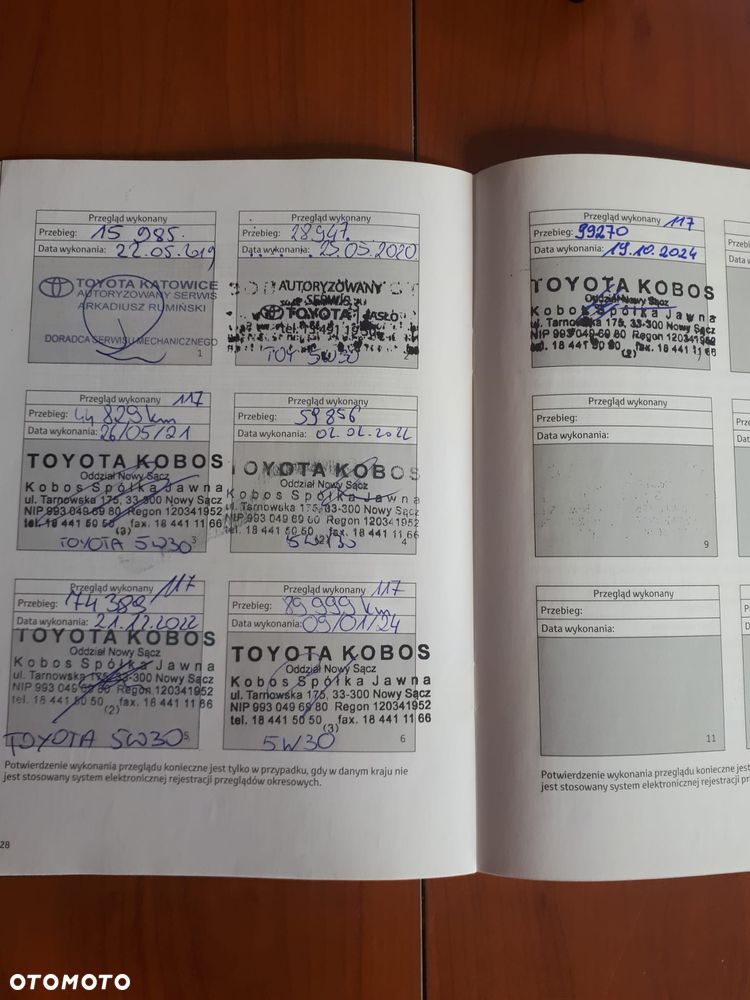 Przegląd wykonany
Przebieg: 15 985.
Data wykonania: 22.05.2019
TOYOTA KATOWICE
AUTORYZOWANY SERWIS
ARKADIUSZ RUMIŃSKI
DORADCA SERWISU MECHANICZNEGO
1
Przegląd wykonany
Przebieg: 28.947.
Data wykonania: 25.05.2020.
AUTORYZOWANY
SERWIS
TOYOTA JASŁO
TOY 5W30
2
Przegląd wykonany 117
Przebieg: 44 829 km
Data wykonania: 26/05/21
TOYOTA KOBOS
Oddział Nowy Sącz
Kobos Spółka Jawna
ul. Tarnowska 175, 33-300 Nowy Sącz
NIP 993 049 69 80 Regon 120341952
tel. 18 441 50 50 fax. 18 441 11 66
(3)
TOYOTA 5W30
3
Przegląd wykonany
Przebieg: 59 856
Data wykonania: 02.02.2022
TOYOTA KOBOS
Oddział Nowy Sącz
Kobos Spółka Jawna
ul. Tarnowska 175, 33-300 Nowy Sącz
NIP 993 049 69 80 Regon 120341952
tel. 18 441 50 50 fax. 18 441 11 66
(2)
5W30
4
Przegląd wykonany 117
Przebieg: 74 389
Data wykonania: 21.12.2022
TOYOTA KOBOS
Oddział Nowy Sącz
Kobos Spółka Jawna
ul. Tarnowska 175, 33-300 Nowy Sącz
NIP 993 049 69 80 Regon 120341952
tel. 18 441 50 50 fax. 18 441 11 66
(2)
TOYOTA 5W30
5
Przegląd wykonany 117
Przebieg: 89 999 km
Data wykonania: 09/01/24
TOYOTA KOBOS
Oddział Nowy Sącz
Kobos Spółka Jawna
ul. Tarnowska 175, 33-300 Nowy Sącz
NIP 993 049 69 80 Regon 120341952
tel. 18 441 50 50 fax. 18 441 11 66
(3)
5W30
6
Potwierdzenie wykonania przeglądu konieczne jest tylko w przypadku, gdy w danym kraju nie
jest stosowany system elektronicznej rejestracji przeglądów okresowych.
28
Przegląd wykonany 117
Przebieg: 99270
Data wykonania: 19.10.2024
TOYOTA KOBOS
Oddział Nowy Sącz
Kobos Spółka Jawna
ul. Tarnowska 175, 33-300 Nowy Sącz
NIP 993 049 69 80 Regon 120341952
tel. 18 441 50 50 fax. 18 441 11 66
(2)
Przegląd wykonany
Przebieg:
Data wykonania:
9
Przegląd wykonany
Przebieg:
Data wykonania:
11
Potwierdzenie wykonania przeglądu konieczne jest
jest stosowany system elektronicznej rejestracji
OTOMOTO